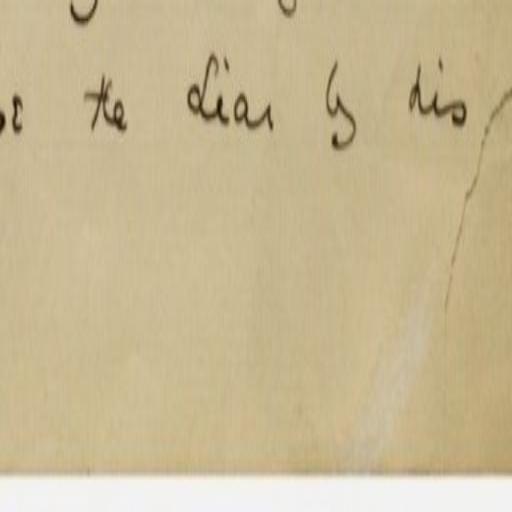 the Liar by his